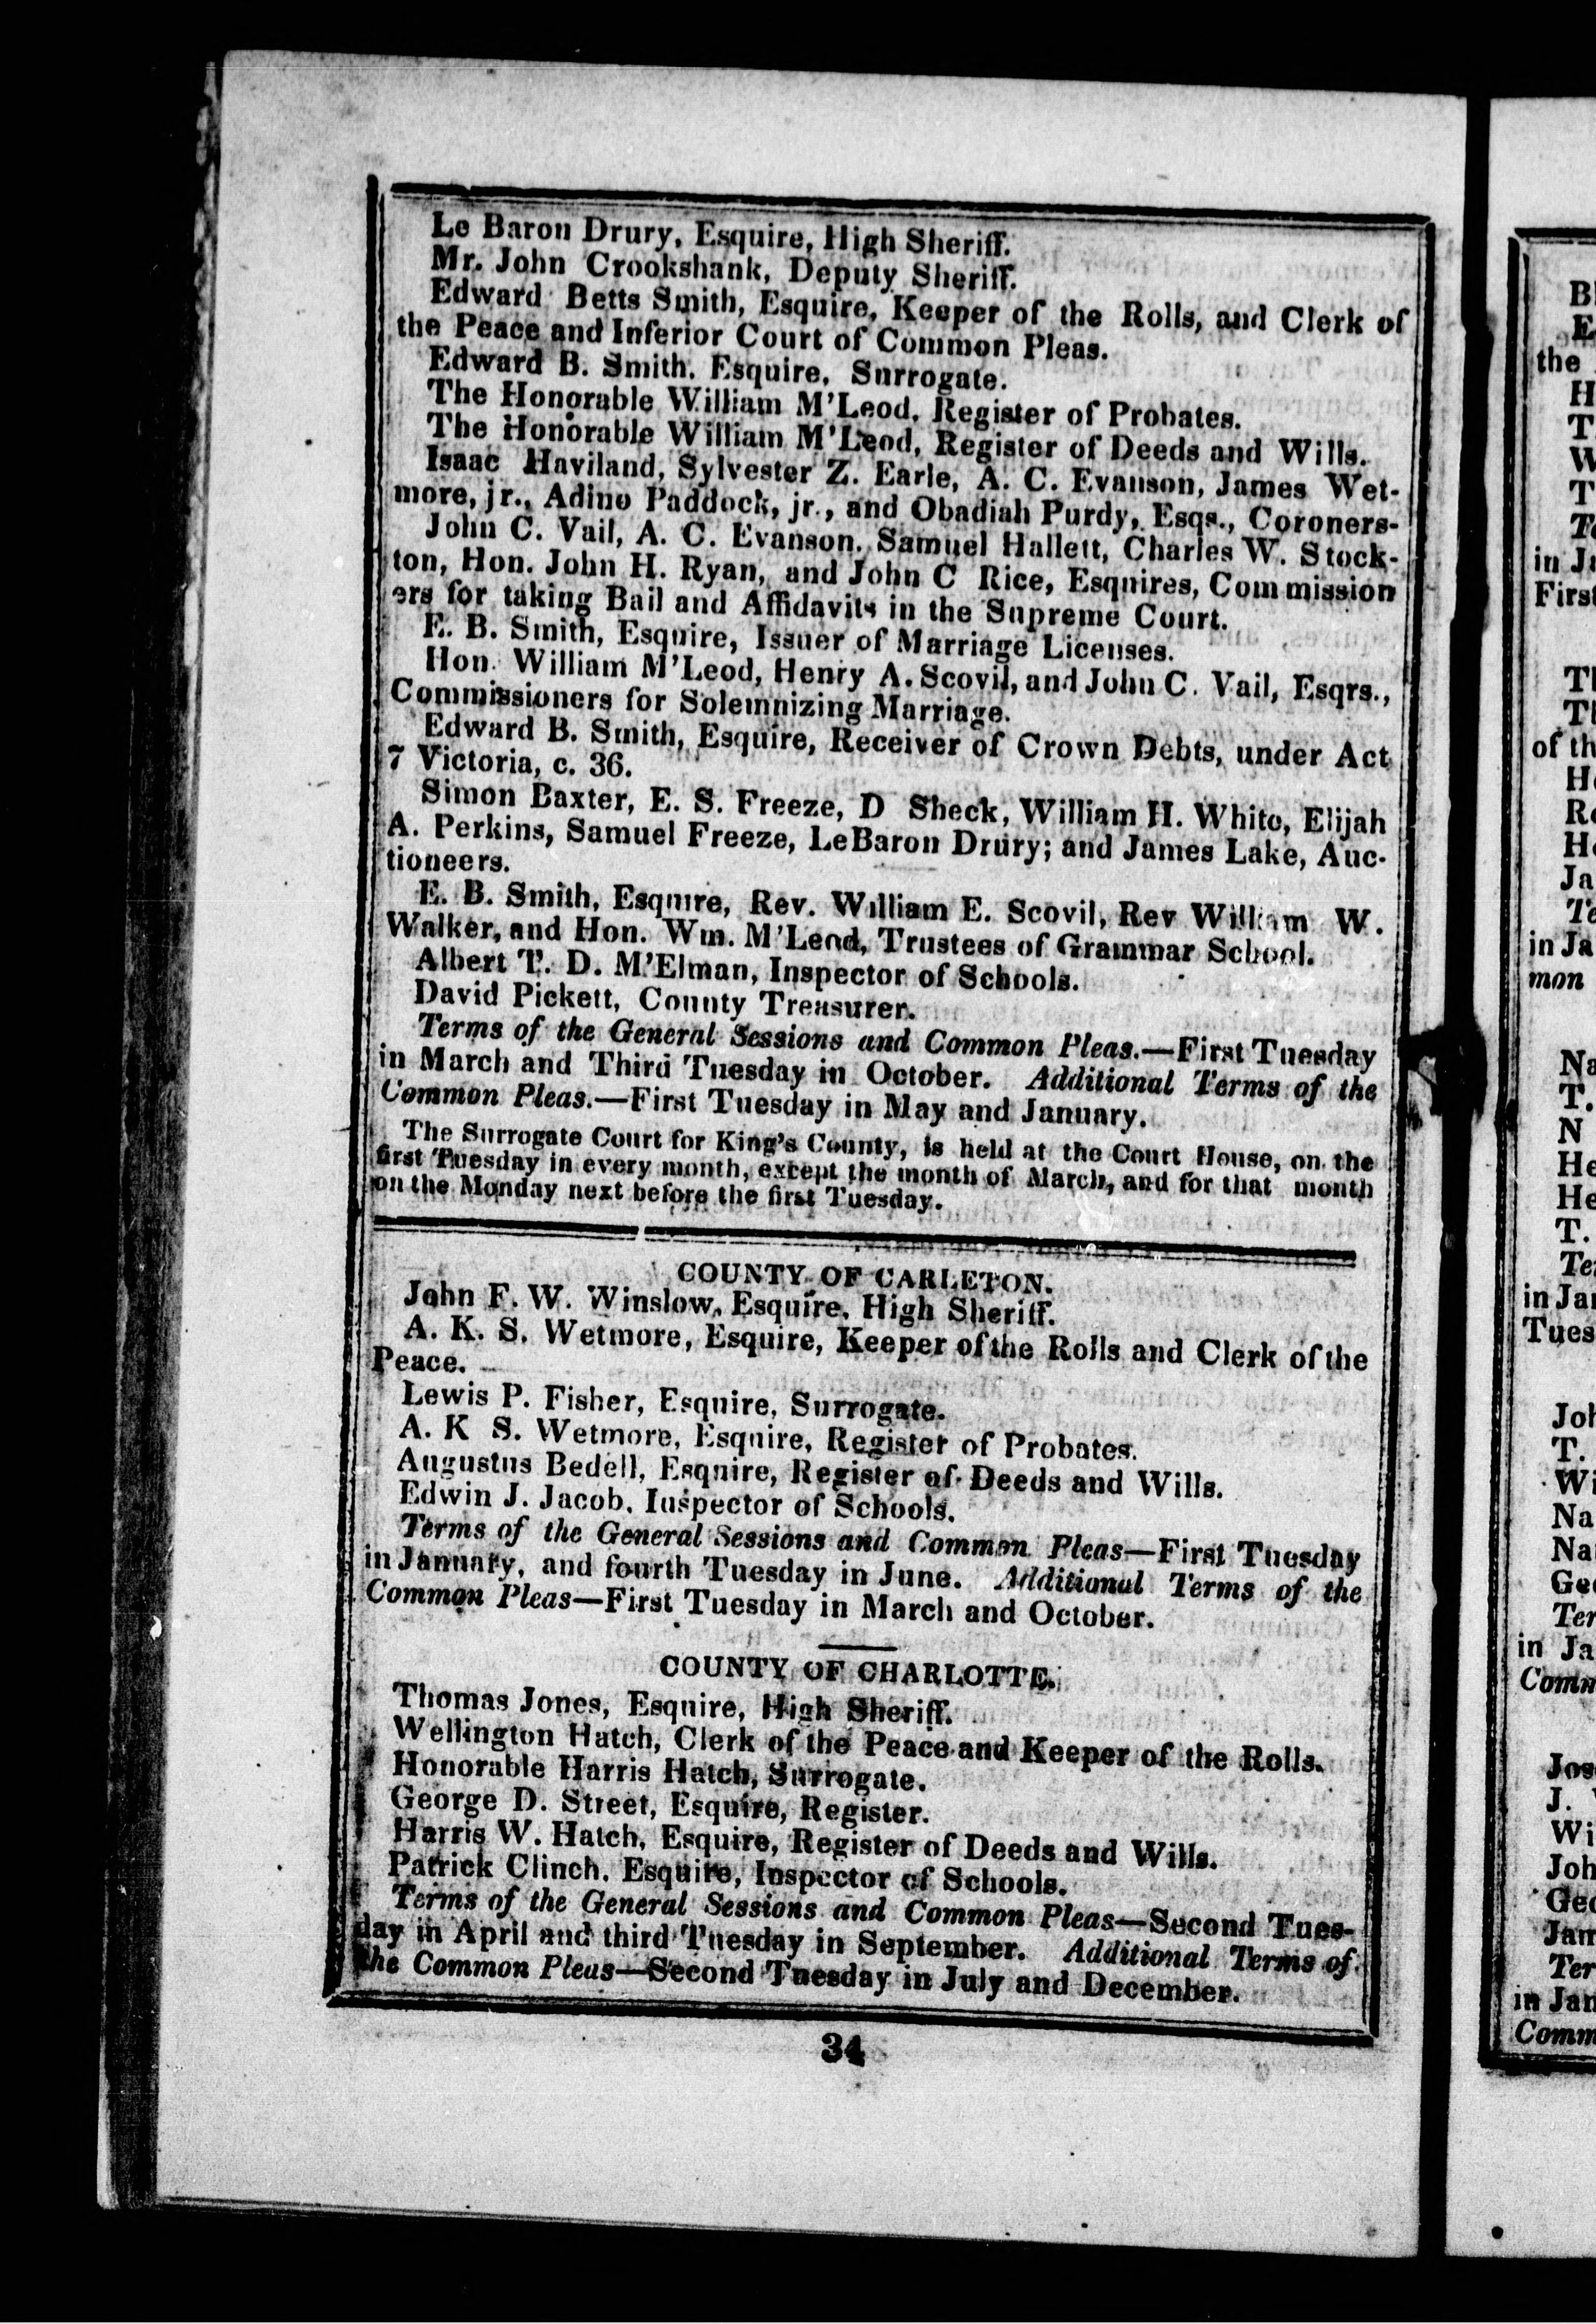 Le Baron Drury, Esquire, High Sheriff.
Mr. John Crookshank, Deputy Sheriff.
Edward Betts Smith, Esquire, Keeper of the Rolls, and Clerk of
the Peace and Inferior Court of Common Pleas.
Edward B. Smith. Esquire, Surrogate.
The Honorable William M'Leod, Register of Probates.
The Honorable William M'Leod, Register of Deeds and Wills.
Isaac Haviland, Sylvester Z. Earle, A. C. Evanson, James Wet-
more, jr., Adino Paddock, jr., and Obadiah Purdy, Esqs., Coroners-
John C. Vail, A. C. Evanson, Samuel Hallett, Charles W. Stock-
ton, Hon. John H. Ryan, and John C Rice, Esquires, Commission
ers for taking Bail and Affidavits in the Supreme Court.
E. B. Smith, Esquire, Issuer of Marriage Licenses.
Hon. William M'Leod, Henry A. Scovil, and John C. Vail, Esqrs.,
Commissioners for Solemnizing Marriage.
Edward B. Smith, Esquire, Receiver of Crown Debts, under Act
7 Victoria, c. 36.
Simon Baxter, E. S. Freeze, D Sheck, William H. White, Elijah
A. Perkins, Samuel Freeze, LeBaron Drury; and James Lake, Auc-
tioneers.
E. B. Smith, Esquire, Rev. William E. Scovil, Rev William W.
Walker, and Hon. Wm. M'Leod, Trustees of Grammar School.
Albert T. D. M'Elman, Inspector of Schools.
David Pickett, County Treasurer.
Terms of the General Sessions and Common Pleas.—First Tuesday
in March and Third Tuesday in October. Additional Terms of the
Common Pleas.—First Tuesday in May and January.
The Surrogate Court for King's County, is held at the Court House, on the
first Tuesday in every month, except the month of March, and for that month
on the Monday next before the first Tuesday.
COUNTY OF CARLETON.
John F. W. Winslow, Esquire, High Sheriff.
A. K. S. Wetmore, Esquire, Keeper of the Rolls and Clerk of the
Peace.
Lewis P. Fisher, Esquire, Surrogate.
A. K S. Wetmore, Esquire, Register of Probates.
Augustus Bedell, Esquire, Register of Deeds and Wills.
Edwin J. Jacob, Inspector of Schools.
Terms of the General Sessions and Common Pleas—First Tuesday
in January, and fourth Tuesday in June. Additional Terms of the
Common Pleas—First Tuesday in March and October.
COUNTY OF CHARLOTTE.
Thomas Jones, Esquire, High Sheriff.
Wellington Hatch, Clerk of the Peace and Keeper of the Rolls.
Honorable Harris Hatch, Surrogate.
George D. Street, Esquire, Register.
Harris W. Hatch, Esquire, Register of Deeds and Wills.
Patrick Clinch. Esquire, Inspector of Schools.
Terms of the General Sessions and Common Pleas—Second Tues-
day in April and third Tuesday in September. Additional Terms of
the Common Pleas—Second Tuesday in July and December.
34